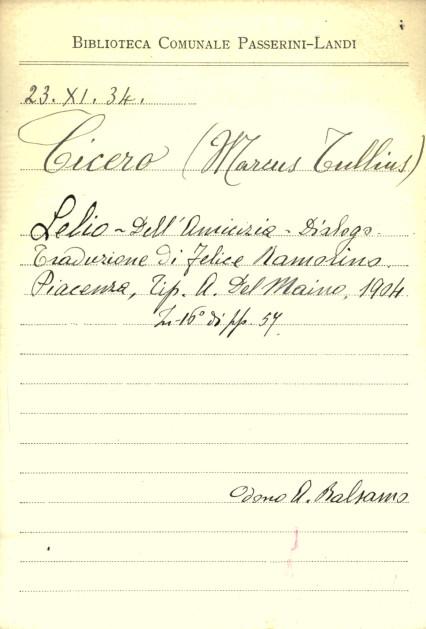 BIBLIOTECA COMUNALE PASSERINI-LANDI
23. XI. 34.
Cicero (Marcus Tullius)
Lelio - Dell'Amicizia - Dialogo.
Traduzione di Felice Ramorino.
Piacenza, Tip. A. Del Maino, 1904
In-16° di pp. 57
dono A. Balsamo